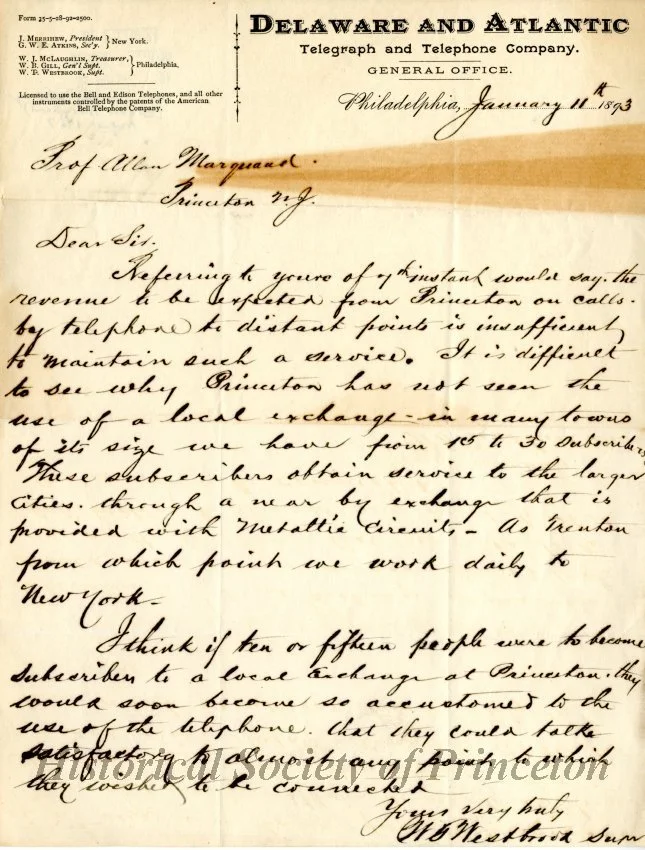 Form 25-5-28-92-2500.
J. MERRIHEW, President
G. W. E. ATKINS, Sec'y. } New York.
W. J. MCLAUGHLIN, Treasurer,
W. B. GILL, Gen'l Supt.
W. D. WESTBROOK, Supt. } Philadelphia,
Licensed to use the Bell and Edison Telephones, and all other
instruments controlled by the patents of the American
Bell Telephone Company.
DELAWARE AND ATLANTIC
Telegraph and Telephone Company.
GENERAL OFFICE.
Philadelphia, January 11th 1893
Prof Allan Marquand.
Princeton N.J.
Dear Sir.
Referring to yours of 7th instant would say. the
revenue to be expected from Princeton on calls.
by telephone to distant points is insufficient
to maintain such a service. It is difficult
to see why Princeton has not seen the
use of a local exchange - in many towns
of its size we have from 15 to 30 subscribers
These subscribers obtain service to the larger
cities. through a near by exchange that is
provided with Metallic Circuits - As Trenton
from which point we work daily to
New York -
I think if ten or fifteen people were to become
subscribers to a local exchange at Princeton. they
would soon become so accustomed to the
use of the telephone. that they could talk
satisfactory to almost any point to which
they wished to be connected
Yours very truly
W D Westbrook Supt
Historical Society of Princeton